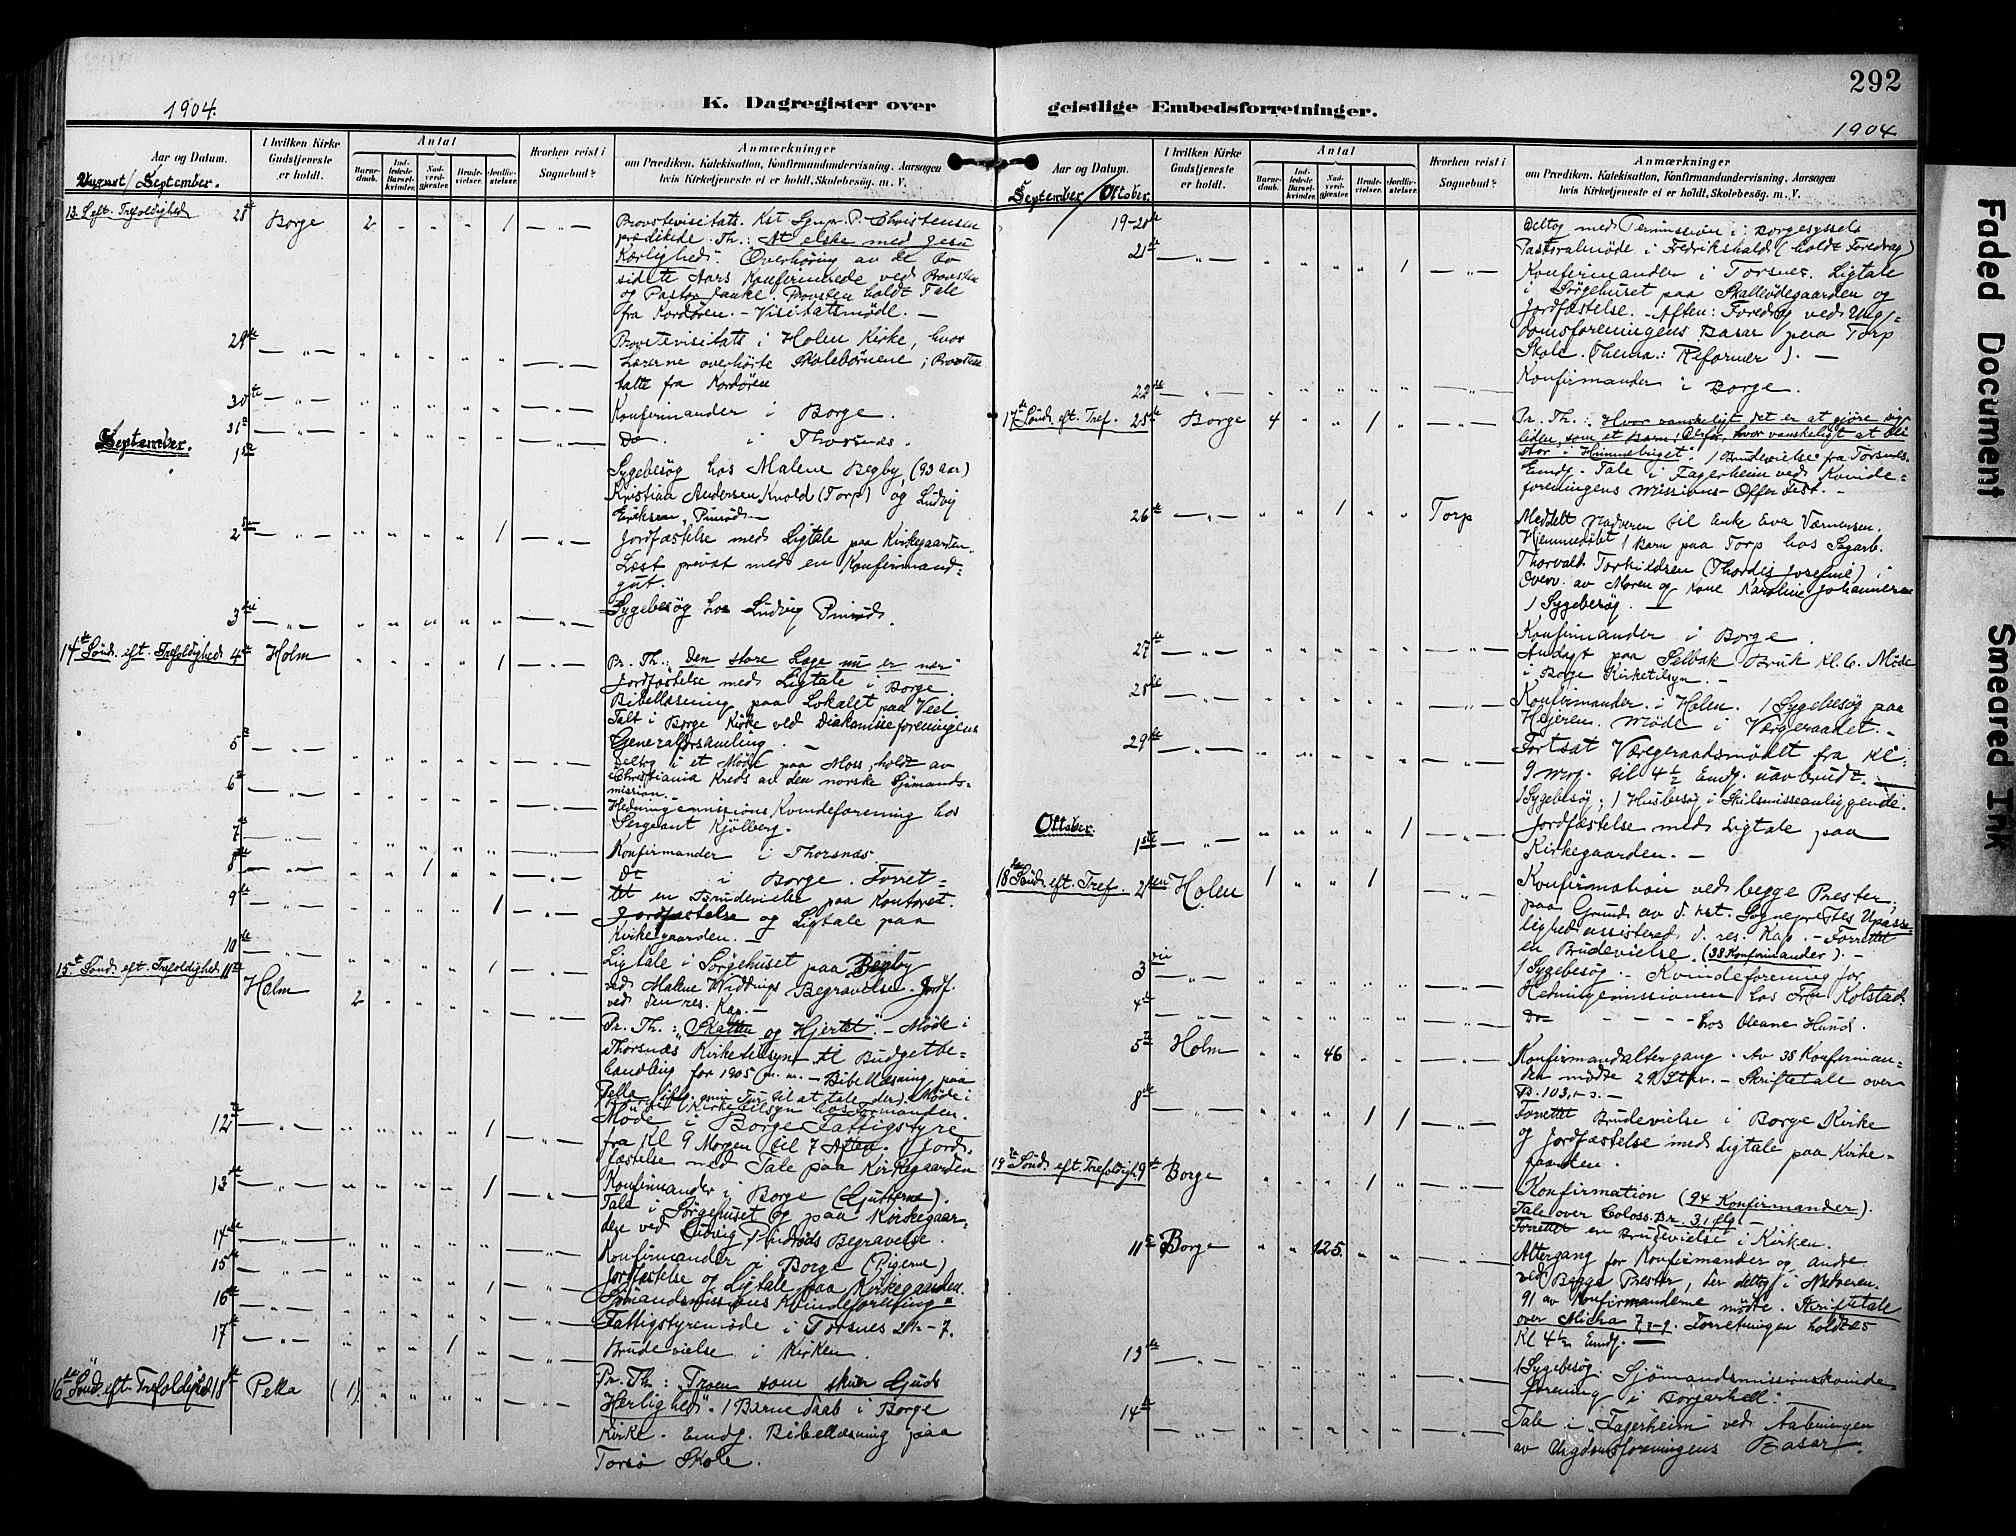 292
K. Dagregister over geistlige Embedsforretninger.
1904.
1904
Aar og Datum.
I hvilken Kirke Gudstjeneste er holdt.
Antal
Barnedaab.
Indledede Barselkvinder.
Nadverdgjester.
Brudevielser.
Jordfæstelser.
Hvorhen reist i Sognebud?
Anmærkninger
om Prædiken, Katekisation, Konfirmandundervisning, Aarsagen
hvis Kirketjeneste ei er holdt, Skolebesøg, m. V.
August / September.
13. S. eft. Trefoldighed 28de Borge 2 1
Provstevisitats. Kst Sgnpr. P. Christensen
prædikede. Th.: At elske med Jesu
Kærlighed. Overhøring av de to
sidste Aars Konfirmerede ved Provsten
og Pastor Hauke. Provsten holdt Tale
fra Kordøren. – Visitatsmøde. –
29de
Provstevisitats i Holm Kirke, hvor
Lærerne overhørte Skolebørnene; Provsten
talte fra Kordøren
30te Konfirmander i Borge.
31te Do i Thorsnæs.
September.
1ste
Sygebesøg hos Malene Begby, (93 aar)
Kristian Andersen Knold (Torp) og Ludvig
Eriksen,
2den 1
Jordfæstelse med Ligtale paa Kirkegaarden.
Læst privat med en Konfirmand-
gut.
3die Sygebesøg hos Ludvig
14de Sønd. eft. Trefoldighed 4de Holm 1
Pr. Th.: Den store Læge nu er nær
Jordfæstelse med Ligtale i Borge.
Bibellæsning paa Lokalet paa Veel
Talt i Borge Kirke ved Diakonisseforeningens
Generalforsamling. –
5te
Deltog i et Møde paa Moss, holdt av
Christiania Kreds av den norske Sjømands-
mission. –
6te
Hedningemissions Kvindeforening hos
Sergeant Kjölberg.
7de Konfirmander i Thorsnæs.
8de 1 Dt i Borge. Forret-
tet en Brudevielse paa Kontoret.
9de 1 Jordfæstelse og Ligtale paa
Kirkegaarden. –
10de
Ligtale i Sørgehuset paa Begby
ved Malene Widdings Begravelse. Jordf.
ved den res. Kap. –
15de Sønd. eft. Trefoldighed 11te Holm 2
Pr. Th.: "Skatten og Hjertet". – Møde i
Thorsnæs Kirketilsyn til Budgetbe-
handling for 1905 m. m. – Bibellæsning paa
Pella (iflg. min Tur til at tale der). Møde i
Borge Kirketilsyn hos Formanden.
12te 1
Møde i Borge Fattigstyre
fra Kl 9 Morgen til 7 Aften. 1 Jord-
fæstelse med Tale paa Kirkegaarden
13de 1
Konfirmander i Borge (Gutterne).
Tale i Sørgehuset og paa Kirkegaar-
den ved Ludvig Begravelse.
14de Konfirmander i Borge (Pigerne)
15de 1 Jordfæstelse og Ligtale paa Kirkegaarden.
16de Sjømandsmissions Kvindeforening
Fattigstyremøde i Torsnes 2½–7.
17de 1 Brudevielse i Kirken.
16de Sønd. eft. Trefoldighed 18de Pella (1)
Pr. Th: Troen som skuer Guds
Herlighed". 1 Barnedaab i Borge
Kirke. Emdg. Bibellæsning paa
Torsø Skole.
Aar og Datum.
I hvilken Kirke Gudstjeneste er holdt.
Antal
Barnedaab.
Indledede Barselkvinder.
Nadverdgjester.
Brudevielser.
Jordfæstelser.
Hvorhen reist i Sognebud?
Anmærkninger
om Prædiken, Katekisation, Konfirmandundervisning, Aarsagen
hvis Kirketjeneste ei er holdt, Skolebesøg, m. V.
September / Oktober.
19–20de
Deltog med Permission i Borgesyssels
Pastoralmøde i Fredrikshald (holdt Foredrag)
21de 1
Konfirmander i Torsnes. Ligtale
i Sørgehuset paa Skallødegaarden og
Jordfæstelse. – Aften: Foredrag ved Ung-
domsforeningens Basar paa Torp
Skole. (Thema: Reformer). –
22de Konfirmander i Borge.
17de Sønd. eft. Tref. 25de Borge 4 1
Pr. Th.: Hvor vanskeligt det er at gjøre sig
liden, som et Barn! Derfor hvor vanskeligt at bli
stor i Himmeriget". 1 Brudevielse fra Torsnes.
Emdg. Tale i Fagerheim ved Kvinde-
foreningens Missions-Offer Fest. –
26de 1 Torp
Meddelt Nadveren til Enke Eva Værnersen.
Hjemmedøbt 1 Barn paa Torp hos Sagarb.
Thorvald Torkildsen (Thordis Josefine) i
Overv. av Moren og Kone Karoline Johannesen
1 Sygebesøg. –
27de
Konfirmander i Borge.
Andagt paa Selbak Bruk Kl. 6. Møde
i Borge Kirketilsyn. –
28de
Konfirmander i Holm. 1 Sygebesøg paa
Møde i Værgeraadet. –
29de
Fortsat Værgeraadsmødet fra Kl
9 Mrg. til 4½ Emdg. uavbrudt. –
1 Sygebesøg; 1 Husbesøg i Skilsmisseanliggende.
Oktober.
1ste 1
Jordfæstelse med Ligtale paa
Kirkegaarden. –
18de Sønd. eft. Tref. 2den Holm 1 1
Konfirmation ved begge Prester,
paa Grund av d. kst. Sogneprestes Upasse-
lighed assistered d. res. Kap. – Forrettet
en Brudevielse (38 Konfirmander). –
3die
1 Sygebesøg. – Kvindeforening for
Hedningemissionen hos Fru Kolstad
4de Do – – – – hos Oleane Hund.
5te Holm 46
Konfirmandaltergang. Av 38 Konfirman-
der mødte 29 Stkr. – Skriftetale over
P. 103,1-3. –
8de 1 1
Forrettet Brudevielse i Borge Kirke
og Jordfæstelse med Ligtale paa Kirke-
gaarden.
19de Sønd. eft. Trefoldigh. 9de Borge 1
Konfirmation (94 Konfirmander).
Tale over Coloss. Br. 3,1 flg. –
Forrettet en Brudevielse i Kirken.
11te Borge 125.
Altergang for Konfirmander og andre
ved Begge Prester, der deltog i Nadveren.
91 av Konfirmanderne mødte. Skriftetale
over Micha 7, Forretningen holdtes
Kl 4½ Emdg. –
13de
1 Sygebesøg. Sjømandsmissionskvinde-
forening i Borgarhell. –
14de
Tale i "Fagerheim" ved Aabningen
av Ungdomsforeningens Basar.
Faded Document
Smeared Ink